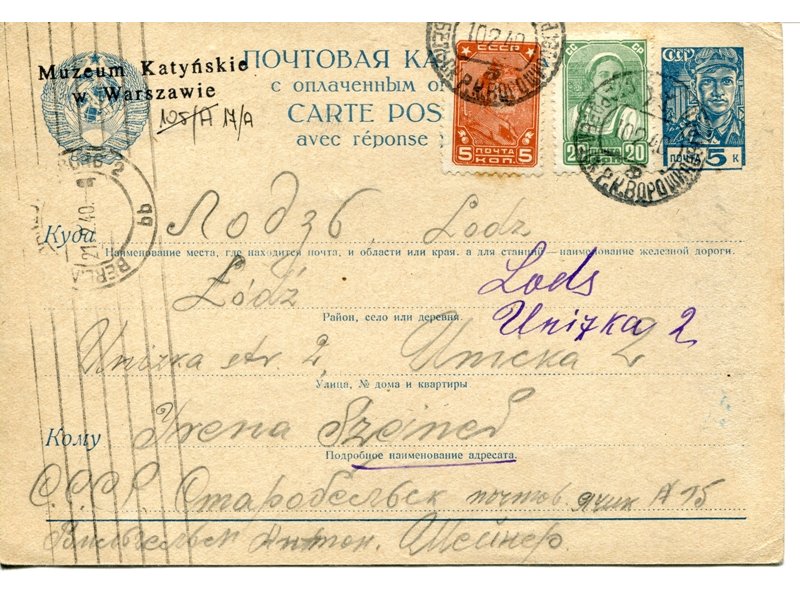 Muzeum Katyńskie
w Warszawie
108/A M/A
ПОЧТОВАЯ КА
с оплаченным о
CARTE POS
avec réponse
СССР
5 ПОЧТА 5
КОП.
СС СР
20 20
СССР
ПОЧТА 5 К
10 2 40
Куда
Лодзь, Lodz
Наименование места, где находится почта, и области или края, а для станций—наименование железной дороги.
Łódź
Lods
Район, село или деревня.
Unizka 2
Unizka str. 2,
2
Улица, № дома и квартиры
Кому
Irena Szeiner
Подробное наименование адресата.
С.С.С.Р. Старобельск почтов. ящик А 15
Антон. Шейнер.